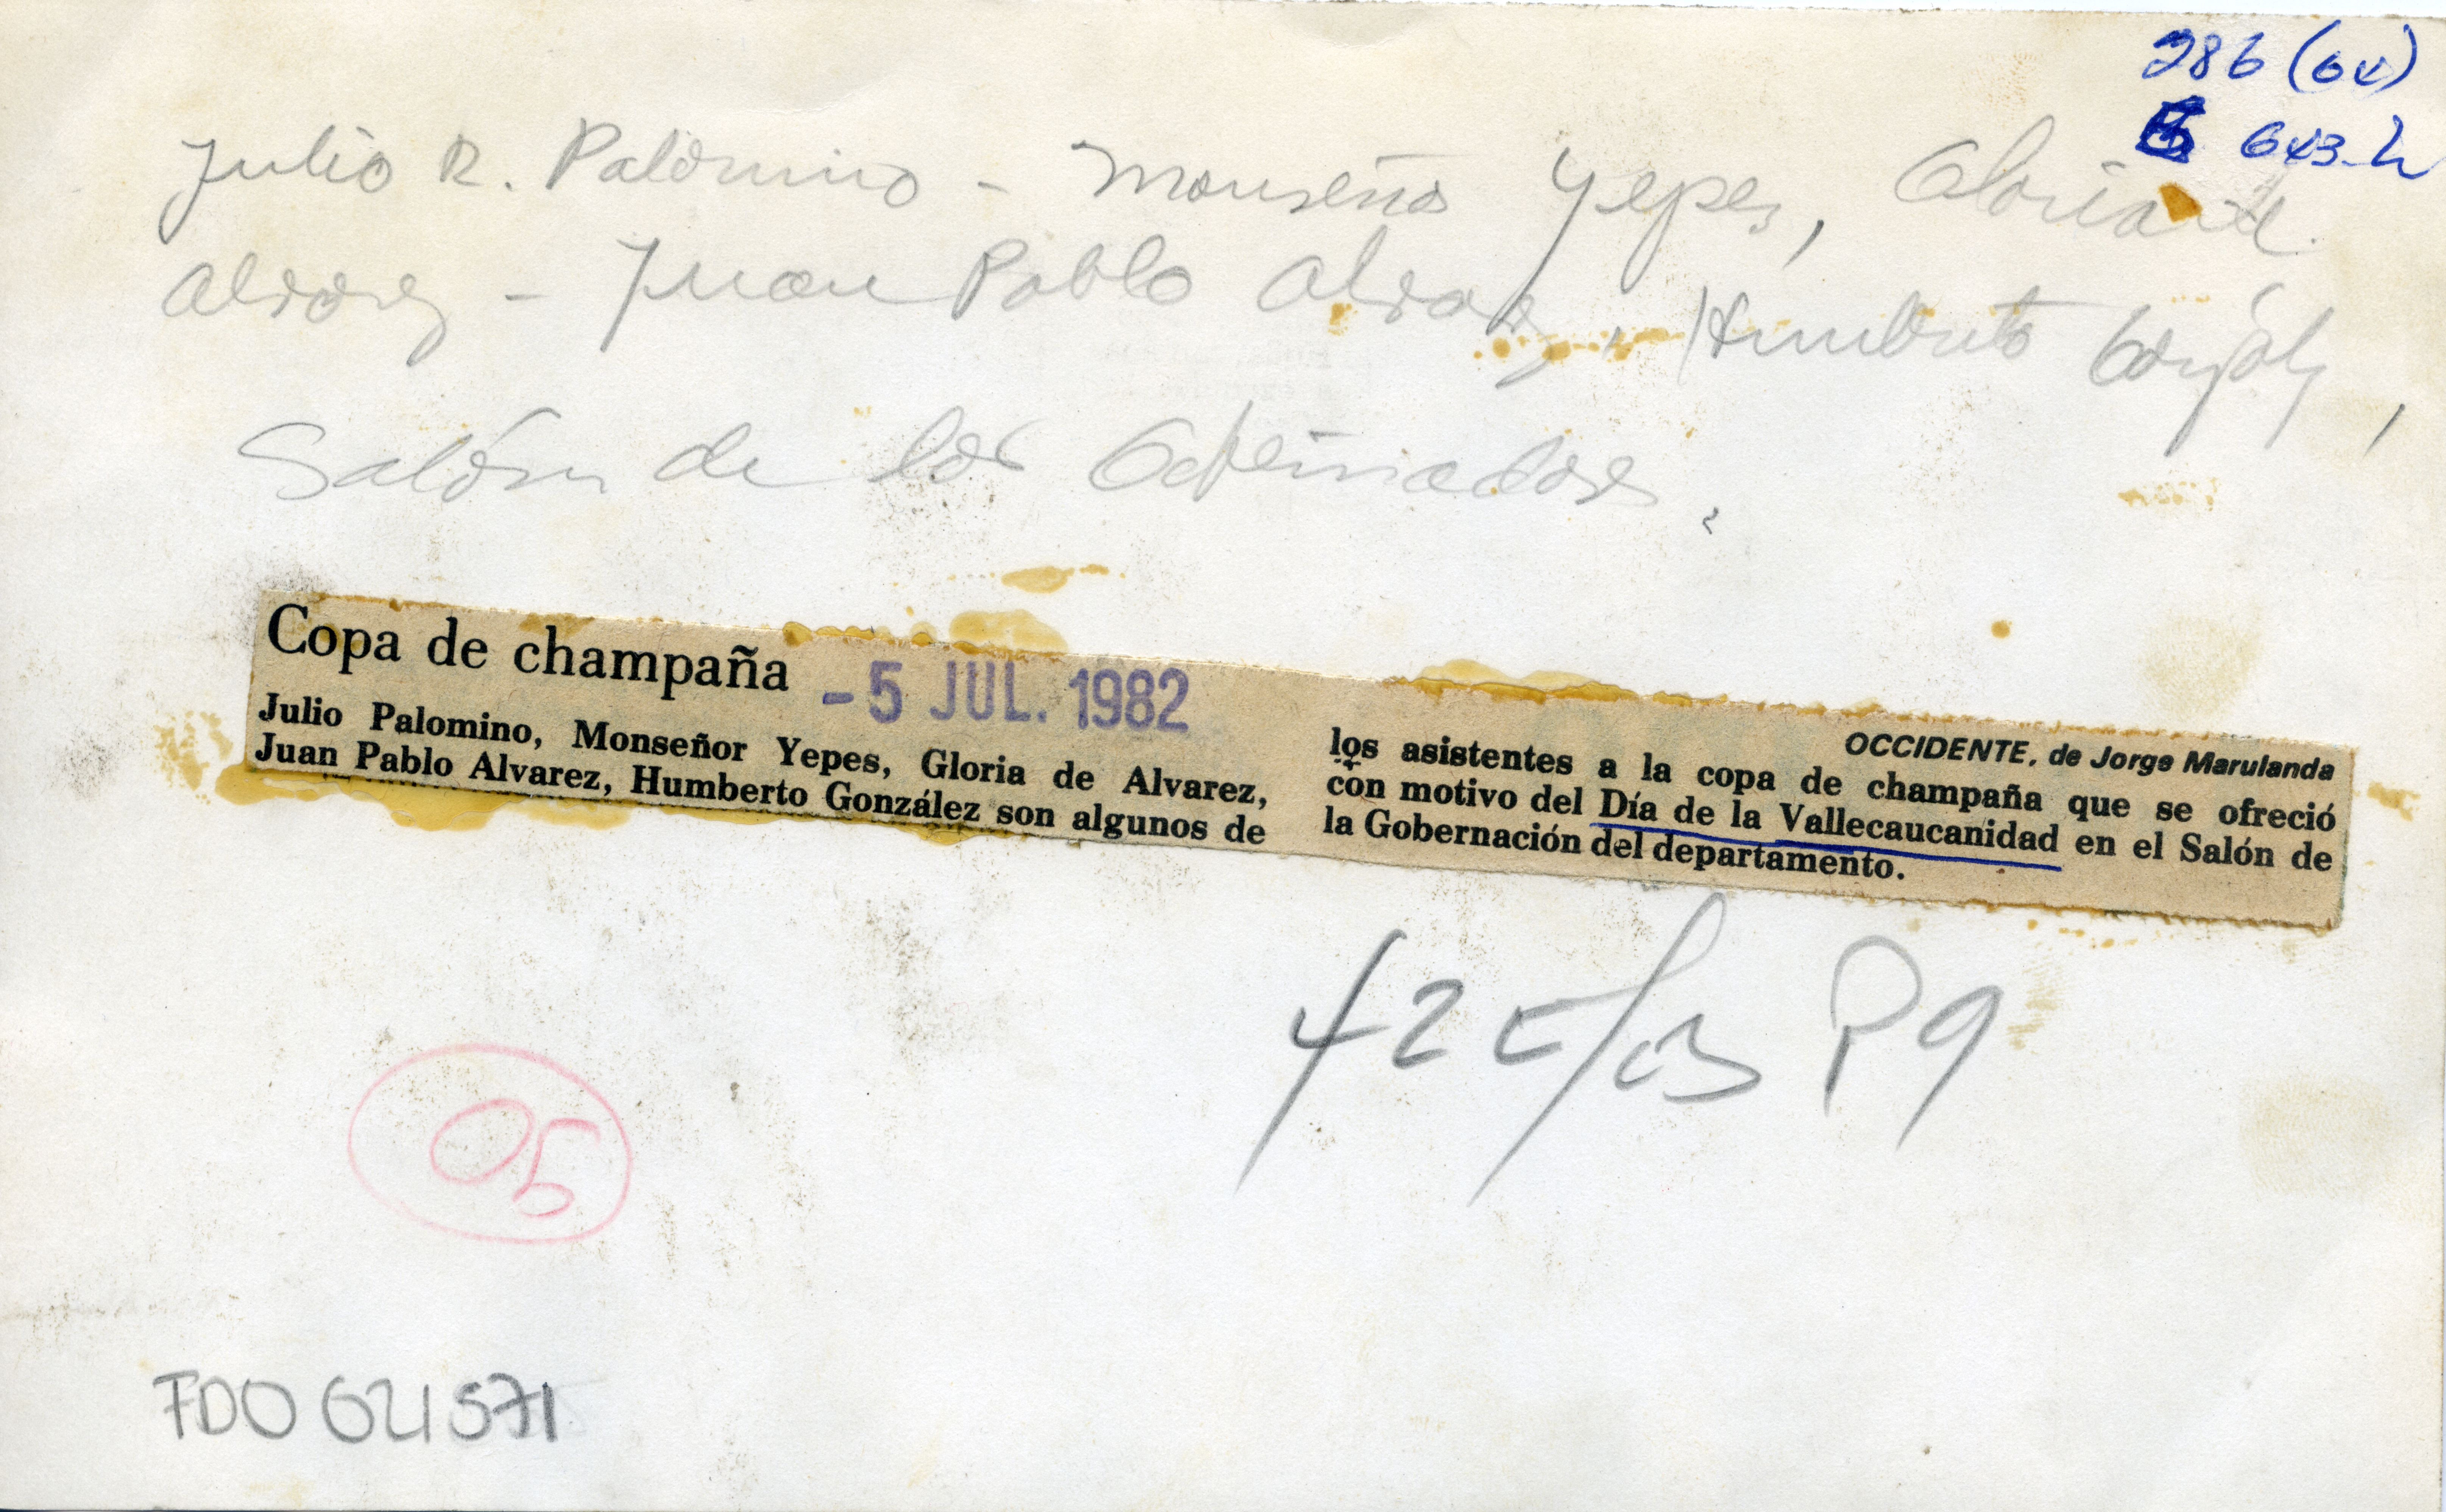 286 (6x)
6x3-L
Julio R. Palomino - Monseñor Yepes, Gloria de
Alvarez - Juan Pablo Alvarez, Humberto Gonzalez,
Salón de los Gobernadores.
Copa de champaña
- 5 JUL. 1982
OCCIDENTE, de Jorge Marulanda
Julio Palomino, Monseñor Yepes, Gloria de Alvarez,
Juan Pablo Alvarez, Humberto González son algunos de
los asistentes a la copa de champaña que se ofreció
con motivo del Día de la Vallecaucanidad en el Salón de
la Gobernación del departamento.
P9
05
FDO 021571